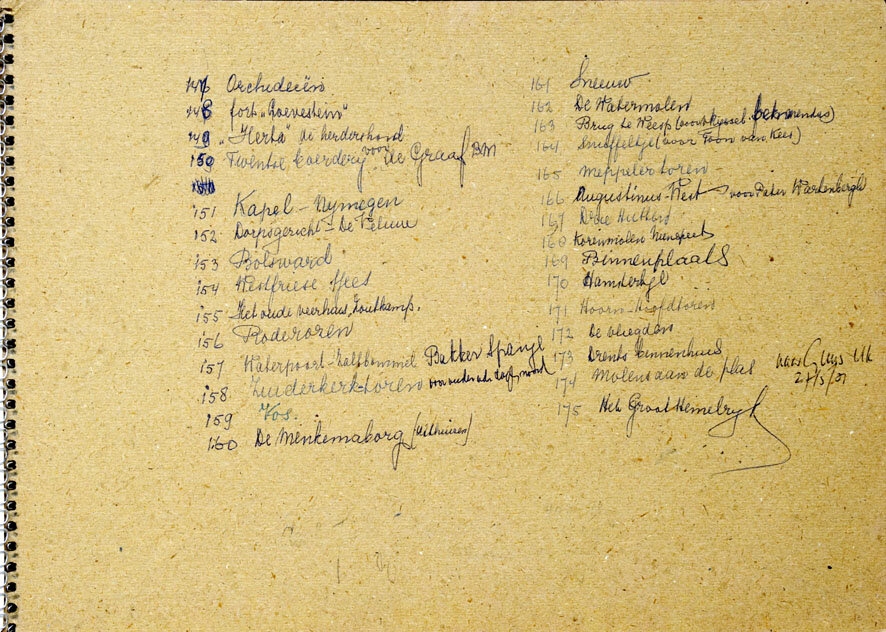 147 Orchideeën
148 fort "Loevestein"
149 "Herta" de herdershond
150 Twentse boerderij voor de Graaf BM
151 Kapel - Nymegen
152 Dorpsgericht - De Veluwe
153 Bolsward
154 Westfriese
155 Het oude veerhuis, Zoutkamp.
156 Rodetoren
157 Waterpoort - Zaltbommel Bakker Spanje
158 Zuiderkerk-toren voor
159 Vos.
160 De Menkemaborg (Uithuizen)
161 Sneeuw
162 De Watermolen
163 Brug te Weesp (voor
164 Snuffeltje (voor Toon van Kees)
165 Meppeler toren
166 Augustinus-Kest voor Pater Wartenbergh
167 Drie Hutten
168 Korenmolen Nunspeet
169 Binnenplaats
170 Hamstertje
171 Hoorn - Hoofdtoren
172 De vliegden
173 Drents binnenhuis
174 Molens aan de plas naar Guus Uk
27/5/01
175 Het Groot Hemelryk